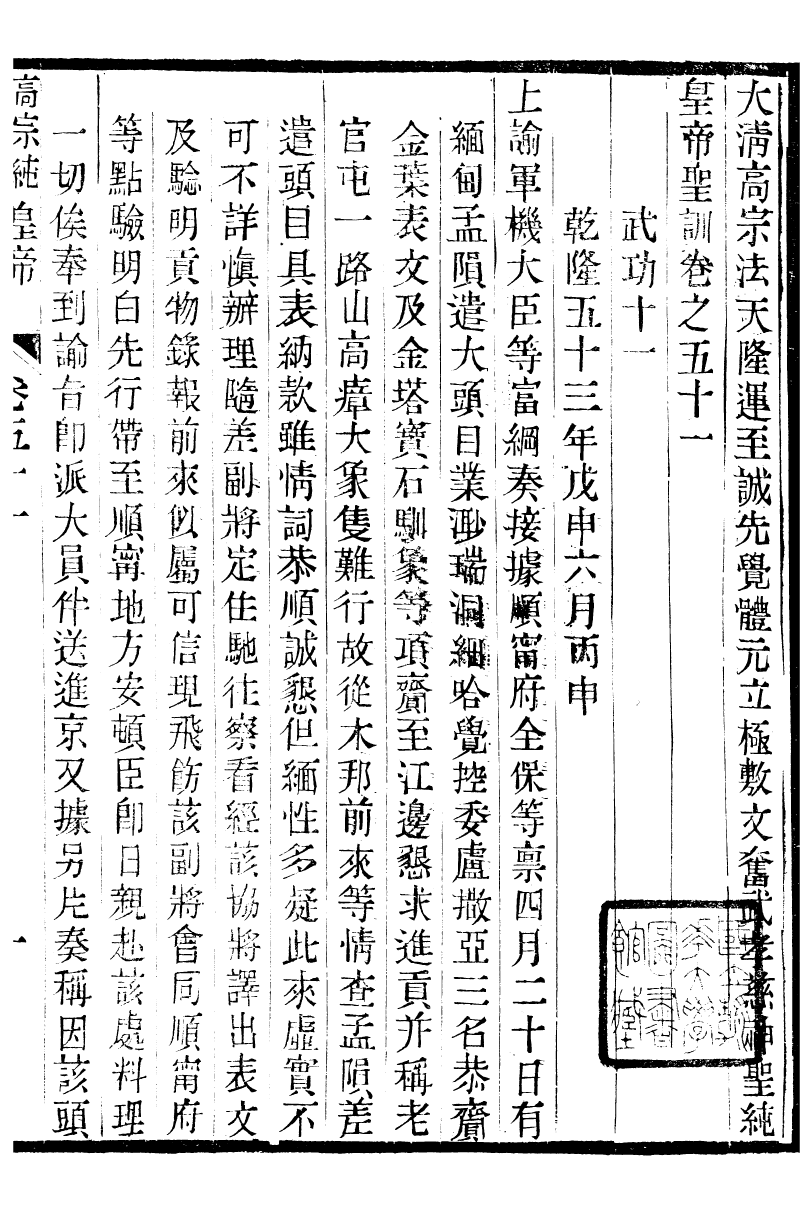 大清高宗法天隆運至誠先覺體元立極敷文奮武孝慈神聖純
皇帝聖訓卷之五十一
武功十一
乾隆五十三年戊申六月丙申
上諭軍機大臣等富綱奏接據順甯府全保等禀四月二十日有
緬甸孟隕遣大頭目業渺瑞洞細哈覺控委盧撒亞三名恭齎
金葉表文及金塔寶石馴象等項齎至江邊懇求進貢并稱老
官屯一路山高瘴大象隻難行故從木邦前來等情查孟隕差
遣頭目具表納款雖情詞恭順誠懇但緬性多疑此來虛實不
可不詳慎辦理隨差副將定住馳往察看經該協將譯出表文
及驗明貢物錄報前來似屬可信現飛飭該副將會同順甯府
等點驗明白先行帶至順甯地方安頓臣卽日親赴該處料理
一切俟奉到諭旨卽派大員伴送進京又據另片奏稱因該頭
高宗純皇帝 卷五十一 一